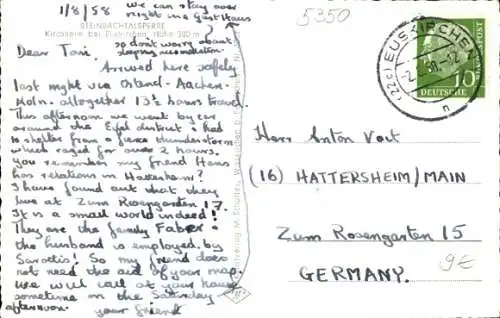 1/8/58
we can stay over
night in a gasthaus
so don't worry about
sleeping accomodation
STEINBACHTALSPERRE
Kirchheim bei Euskirchen, Höhe 280 m
Dear Toni,
Arrived here safely
last night via Ostend-Aachen-
Köln. altogether 13½ hours travel.
This afternoon we went by car
around the Eifel district & had
to shelter from a fierce thunderstorm
which raged for over 2 hours.
You remember my friend Hans
has relations in Hattersheim?
I have found out that they
live at Zum Rosengarten 17.
It is a small world indeed!
They are the family Faber &
the husband is employed by
Sarotti! So my friend does
not need the aid of your map.
We will call at your house
sometime in the Saturday
afternoon.
your friend
5350
(22c) EUSKIRCHEN
n
DEUTSCHE
BUNDESPOST
10
Herr Anton Voit
(16) HATTERSHEIM/MAIN
Zum Rosengarten 15
GERMANY.
9€